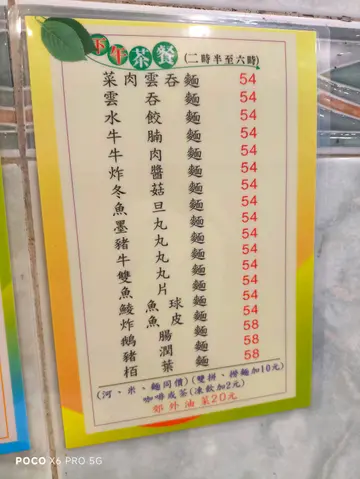 下午茶餐 (二時半至六時)
菜肉雲吞麵 54
雲吞麵 54
水餃麵 54
牛腩麵 54
牛肉麵 54
炸醬麵 54
冬菇麵 54
魚旦麵 54
墨丸麵 54
豬丸麵 54
牛丸麵 54
雙丸麵 54
魚片麵 54
鯪魚球麵 54
炸魚皮麵 54
鵝腸麵 58
豬潤麵 58
栢葉麵 58
(河、米、麵同價)(雙拼、撈麵加10元)
咖啡或茶(凍飲加2元)
郊外油菜20元
POCO X6 PRO 5G